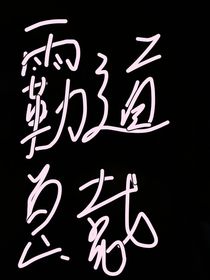 霸道
总裁